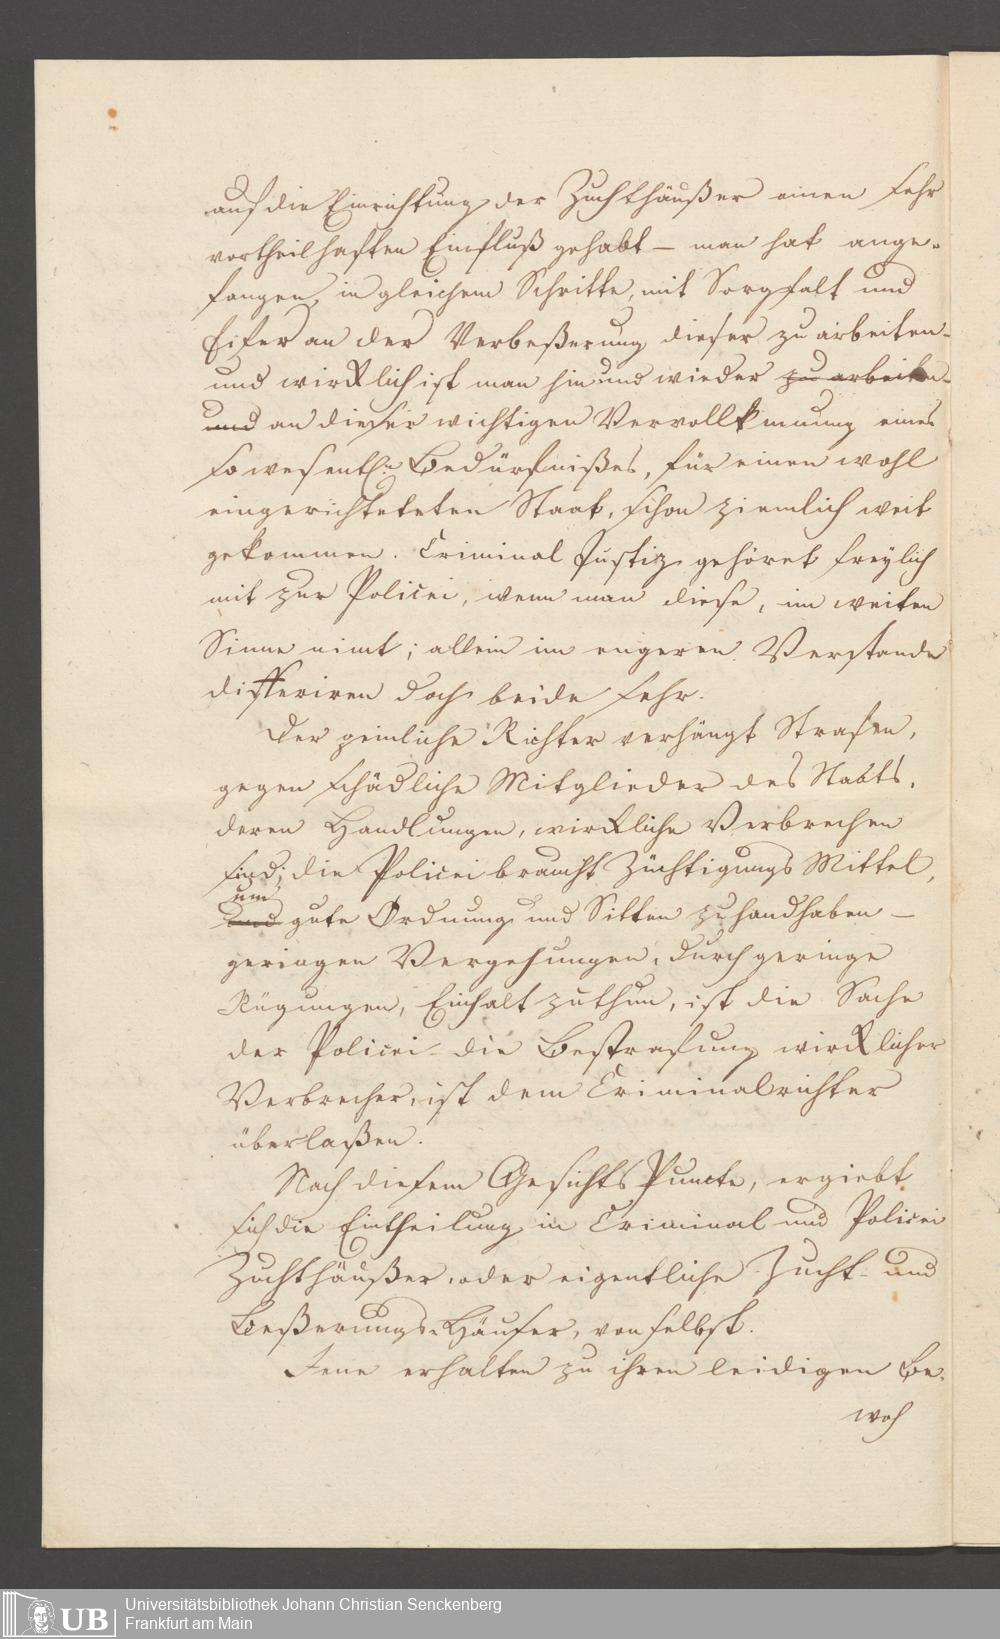 auf die Einrichtung der Zuchthäußer einen sehr
vortheilhaften Einfluß gehabt – man hat ange-
fangen, in gleichem Schritte, mit Sorgfalt und
Eifer an der Verbeßerung dieser zu arbeiten –
und wirklich ist man hin und wieder zu arbeiten –
und an dieser wichtigen Vervollkmnung eines
so wesentl. Bedürfnißes, für einen wohl
eingerichteteten Staat, schon ziemlich weit
gekommen. Criminal Justiz gehöret freylich
mit zur Policei, wenn man diese, im weiten
Sinne nimt; allein im engeren Verstande
differiren doch beide sehr.
Der peinliche Richter verhängt Strafen,
gegen schädliche Mitglieder des Staats,
deren Handlungen, wirkliche Verbrechen
sind; die Policei braucht Züchtigungs Mittel,
um
und gute Ordnung und Sitten zu handhaben –
geringen Vergehungen, durch geringe
Rügungen, Einhalt zu thun, ist die Sache
der Policei – die Bestrafung wirklicher
Verbrecher, ist dem Criminalrichter
überlaßen.
Nach diesem Gesichts Puncte, ergiebt
sich die Eintheilung in Criminal und Policei
Zuchthäußer, oder eigentliche Zucht- und
Beßerungs-Häuser, von selbst.
Jene erhalten zu ihren leidigen Be-
woh
UB
Universitätsbibliothek Johann Christian Senckenberg
Frankfurt am Main